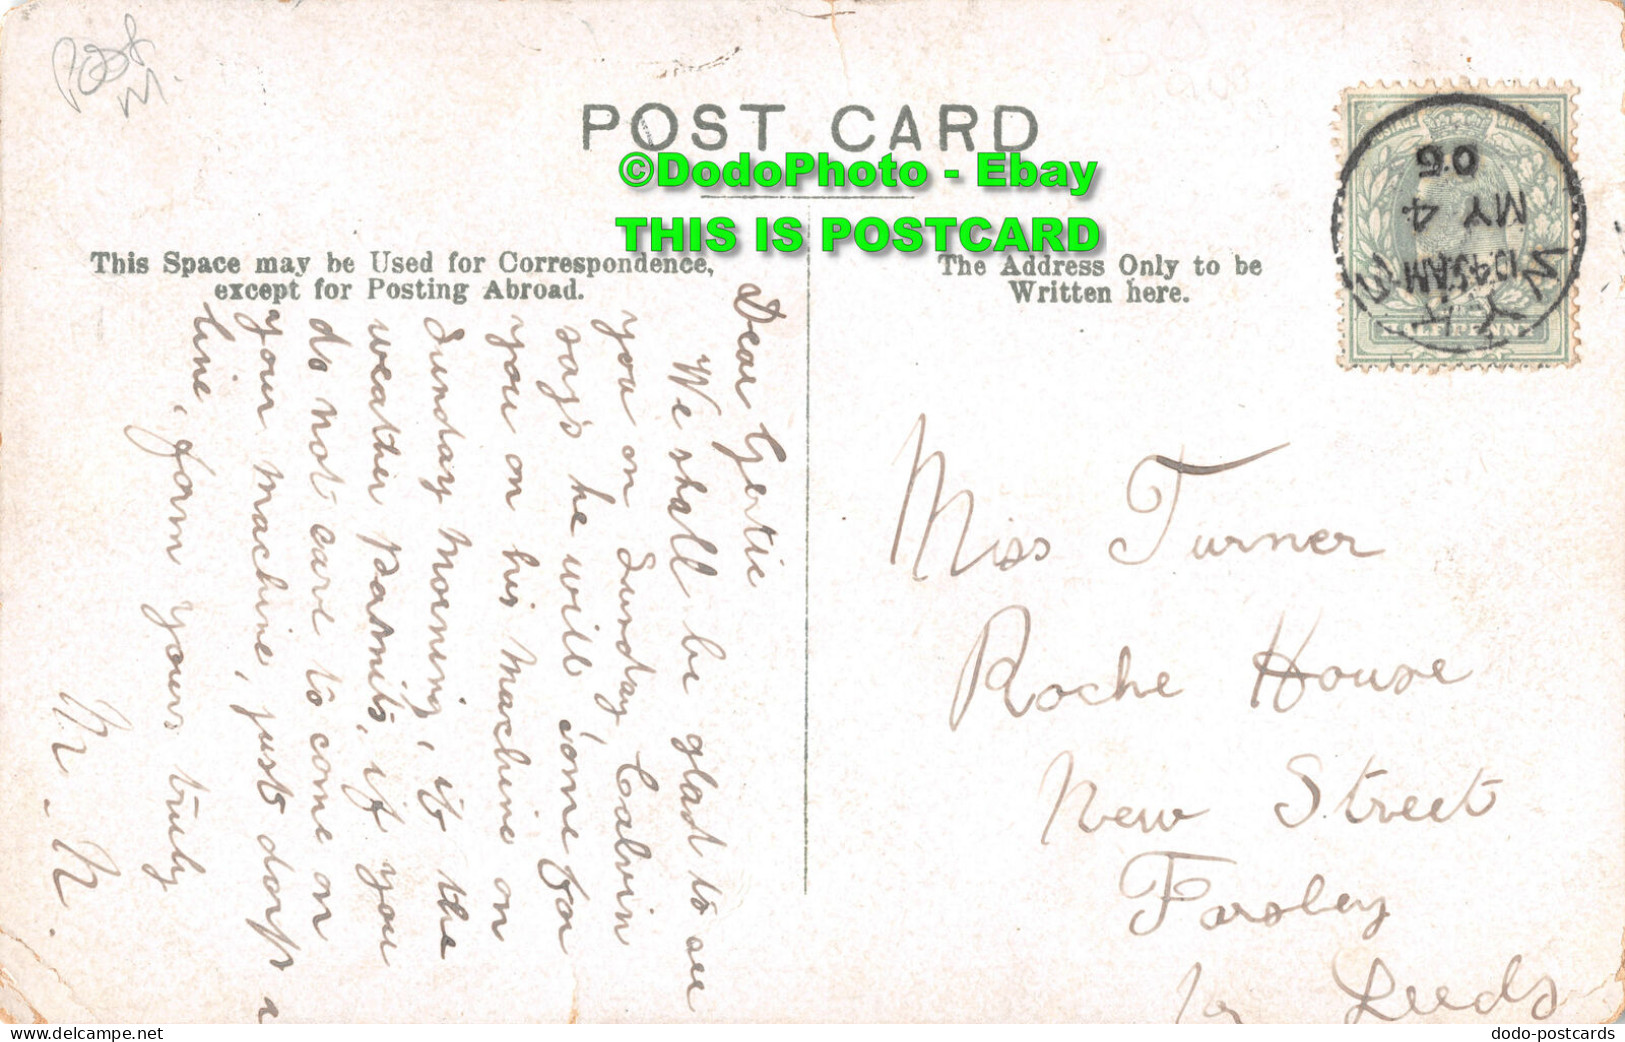 Post
M.
POST CARD
©DodoPhoto - Ebay
THIS IS POSTCARD
This Space may be Used for Correspondence,
except for Posting Abroad.
The Address Only to be
Written here.
10.45AM
MY 4
06
HALFPENNY
Dear Gertie
We shall be glad to see
you on Sunday, Calvin
say's he will come for
you on his machine on
Sunday morning, if the
weather permits, if you
do not care to come on
your machine, just drop a
line, from yours truly
N. N.
Miss Turner
Roche House
New Street
Farsley
Leeds
www.delcampe.net
dodo-postcards